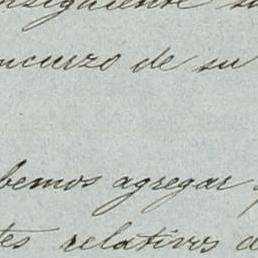 nsiguiente su
ncurzo de su
bemos agregar
tes relativos d